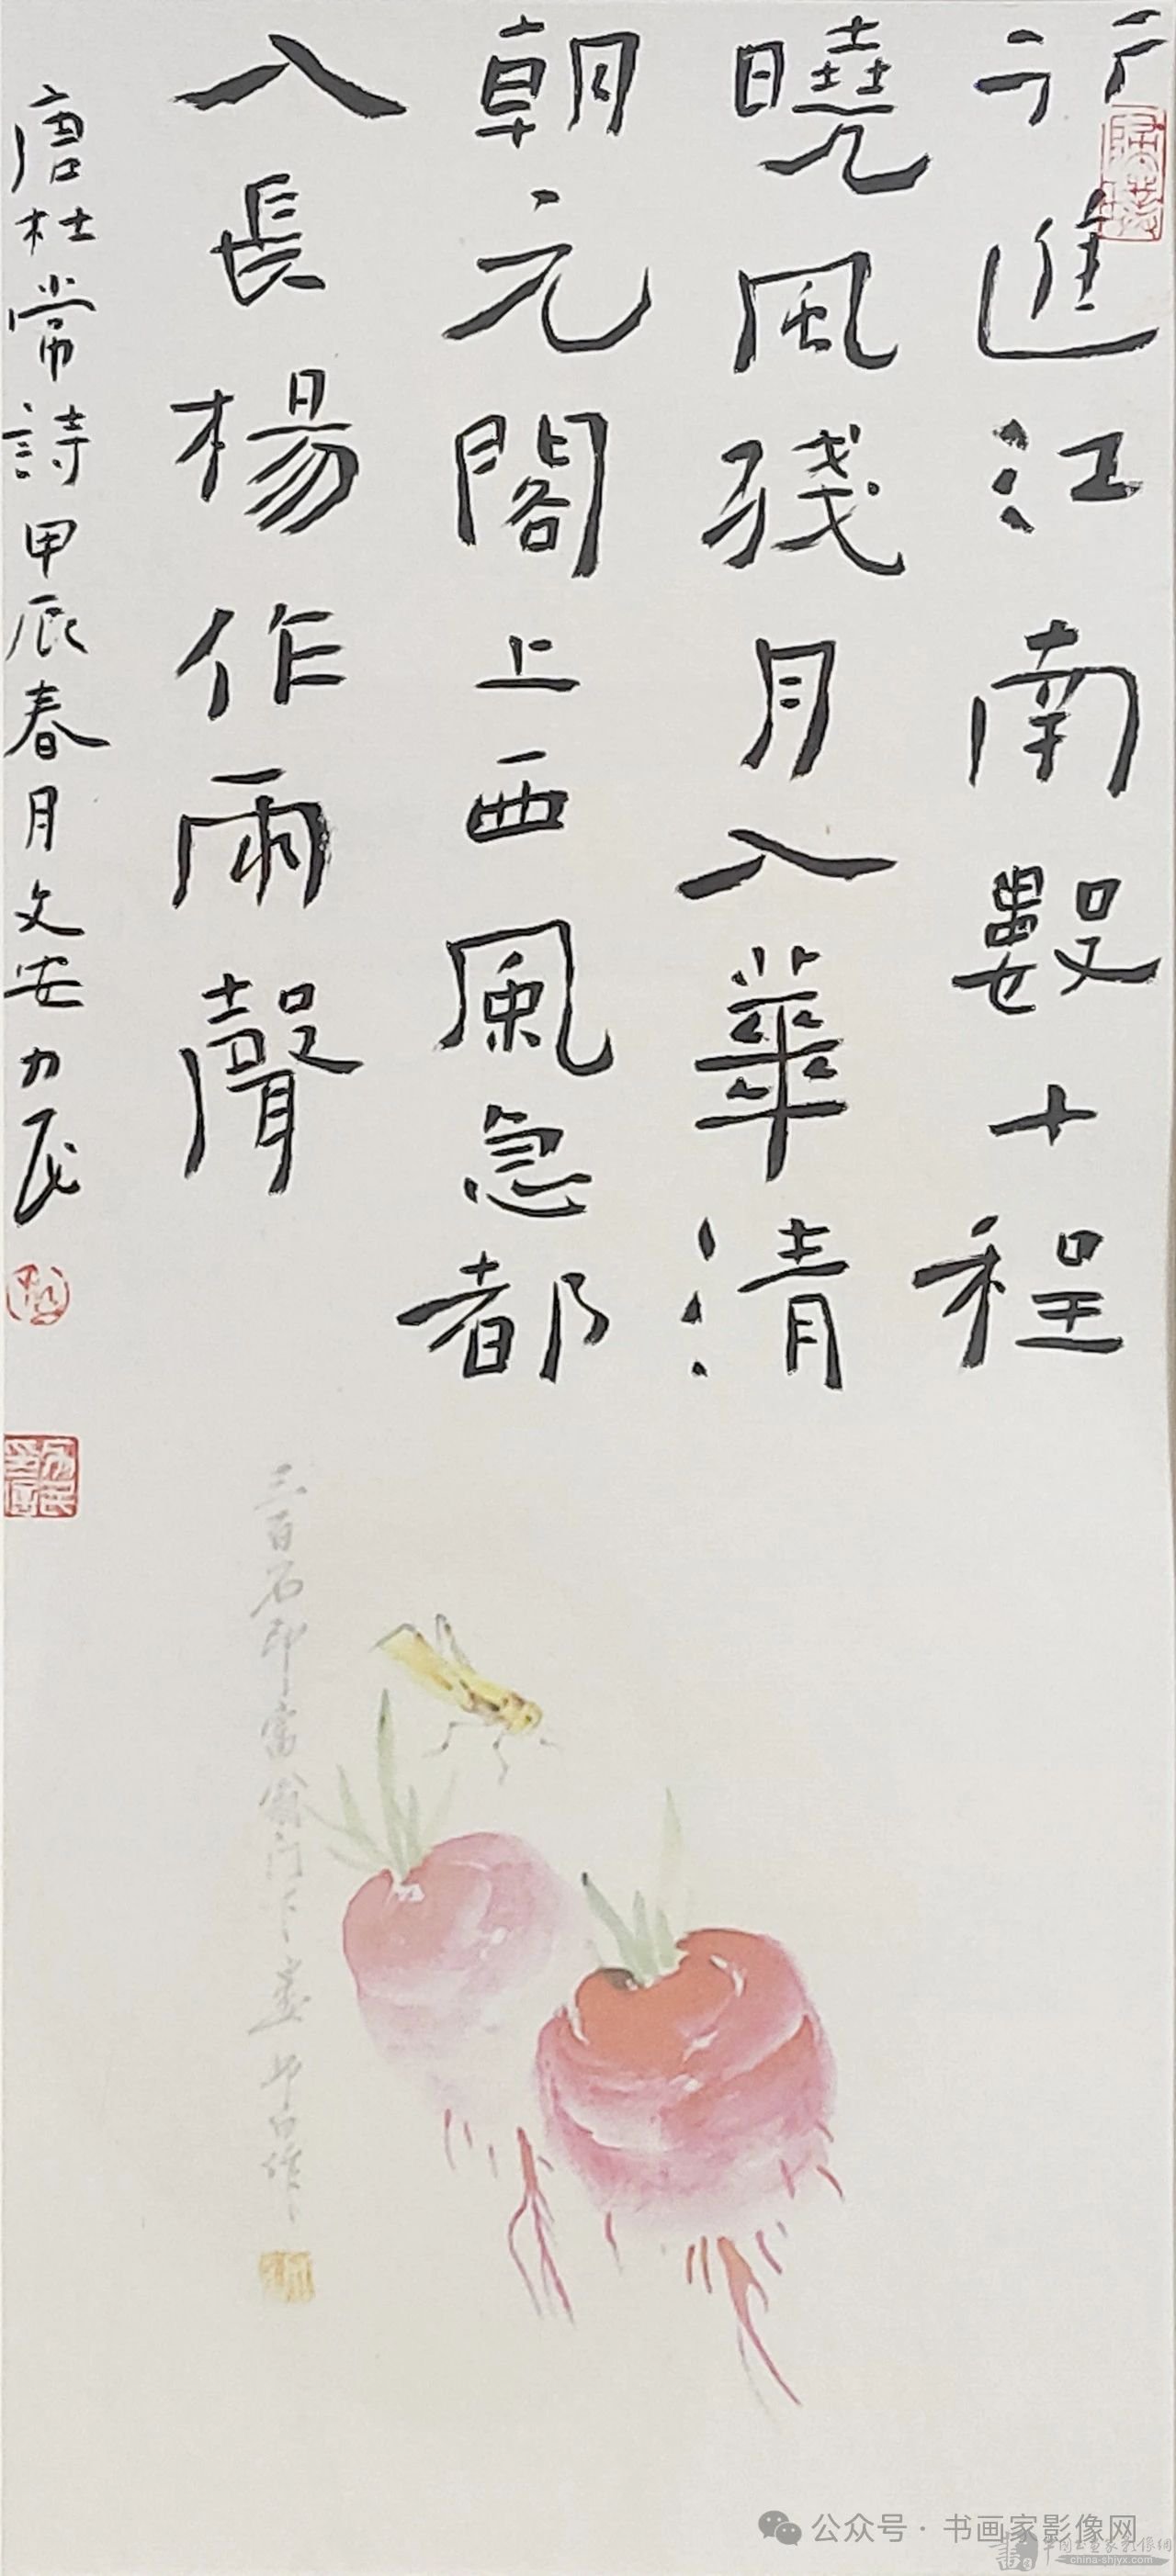 行進江南數十程
曉風殘月入華清
朝元閣上西風急都
入長楊作雨聲
唐杜常詩甲辰春月文安力民
三百石印富翁門下畫
公众号·书画家影像网
china-shjyx.com